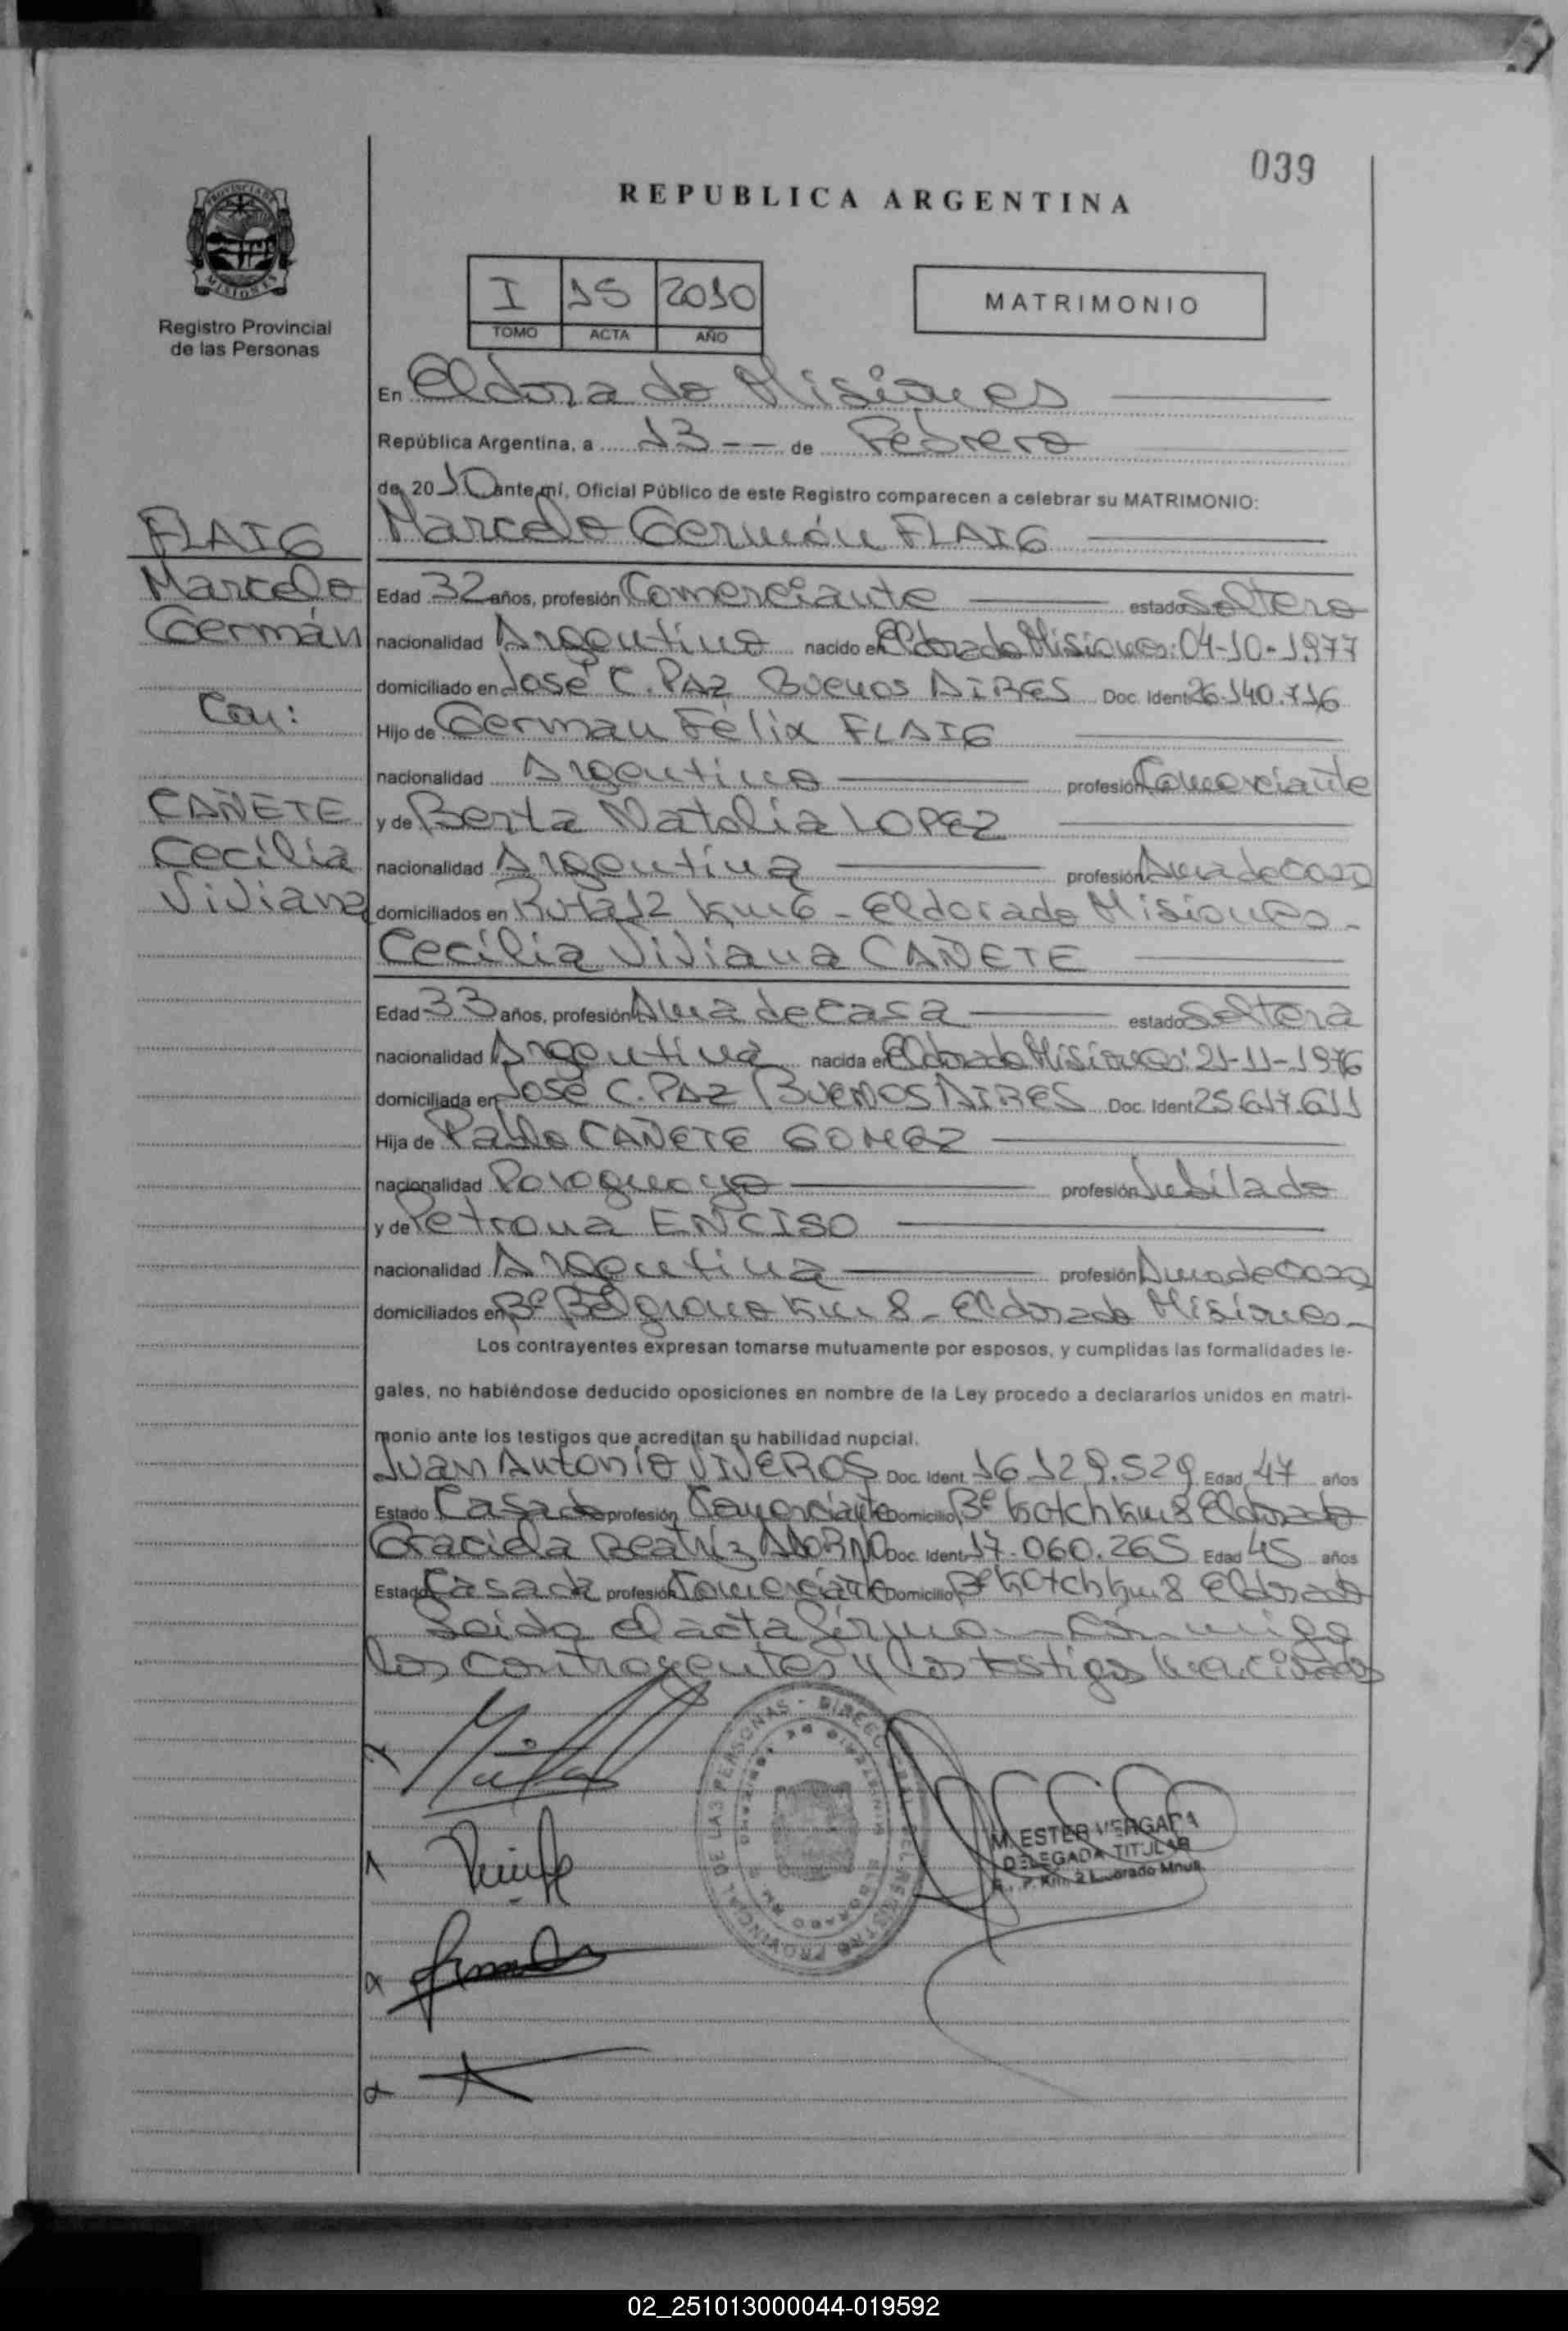 039
REPUBLICA ARGENTINA
PROVINCIA DE
MISIONES
Registro Provincial
de las Personas
I 15 2010
TOMO ACTA AÑO
MATRIMONIO
En Eldorado Misiones
República Argentina, a 13 -- de Febrero
de 2010 ante mí, Oficial Público de este Registro comparecen a celebrar su MATRIMONIO:
Marcelo Germán FLAIG
FLAIG
Marcelo
Germán
Con:
CAÑETE
Cecilia
Viviana
Edad 32 años, profesión Comerciante estado Soltero
nacionalidad Argentino nacido en Eldorado Misiones: 04-10-1977
domiciliado en José C. PAZ Buenos AIRES Doc. Ident. 26.140.716
Hijo de German Félix FLAIG
nacionalidad Argentino profesión Comerciante
y de Berta Natalia LOPEZ
nacionalidad Argentina profesión Ama de casa
domiciliados en Ruta 12 km 6 - Eldorado Misiones -
Cecilia Viviana CAÑETE
Edad 33 años, profesión Ama de casa estado Soltera
nacionalidad Argentina nacida en Eldorado Misiones: 21-11-1976
domiciliada en José C. PAZ BUENOS AIRES Doc. Ident. 25.617.611
Hija de Pablo CAÑETE GOMEZ
nacionalidad Paraguayo profesión Jubilado
y de Petrona ENCISO
nacionalidad Argentina profesión Ama de casa
domiciliados en Bº Belgrano km 8 - Eldorado Misiones -
Los contrayentes expresan tomarse mutuamente por esposos, y cumplidas las formalidades le-
gales, no habiéndose deducido oposiciones en nombre de la Ley procedo a declararlos unidos en matri-
monio ante los testigos que acreditan su habilidad nupcial.
Juan Antonio VIVEROS Doc. Ident. 16.129.529 Edad 47 años
Estado Casado profesión Comerciante Domicilio Bº Kotch km 8 Eldorado
Graciela Beatriz ADORNO Doc. Ident. 17.060.265 Edad 45 años
Estado Casada profesión Comerciante Domicilio Bº Kotch km 8 Eldorado
Leida el acta firman conmigo
los contrayentes y los testigos mencionados
M. ESTER VERGARA
DELEGADA TITULAR
02_251013000044-019592